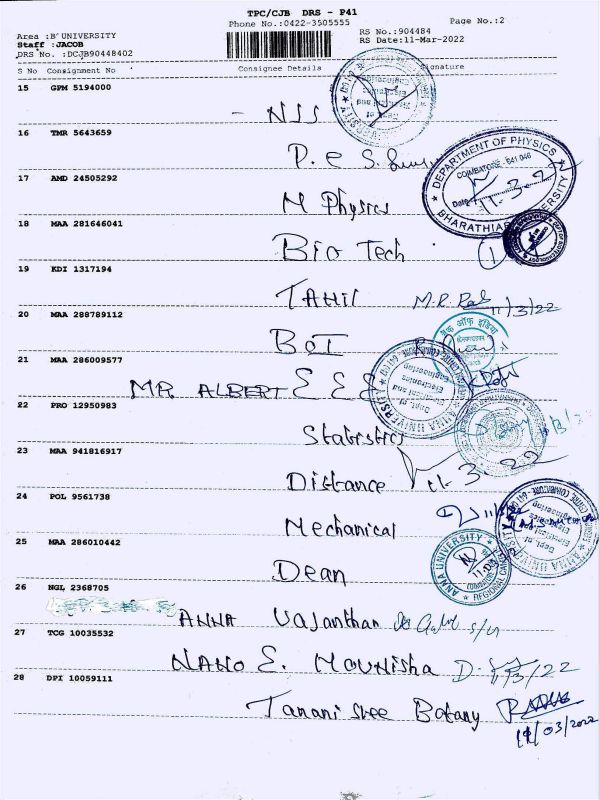 TPC/CJB DRS - P41
Phone No.:0422-3505555
Page No.:2
Area :B'UNIVERSITY
RS No.:904484
Staff :JACOB
RS Date:11-Mar-2022
DRS No. :DCJB90448402
S No Consignment No Consignee Details Signature
15 GPM 5194000
- NSS
16 TMR 5643659
P. e S.
DEPARTMENT OF PHYSICS
COIMBATORE - 641 046
Date
BHARATHIAR UNIVERSITY
17 AMD 24505292
M Physics
18 MAA 281646041
Bio Tech 1
19 KDI 1317194
TAMIL M.R. 11/3/22
20 MAA 288789112
BOI
बैंक ऑफ़ इंडिया
21 MAA 286009577
MR ALBERT E E E
Dept. of Electrical and Electronics Engineering
ANNA UNIVERSITY
22 PRO 12950983
Statistics
23 MAA 941816917
Distance 11.3.22
24 POL 9561738
Mechanical
25 MAA 286010442
Dean
ANNA UNIVERSITY
26 NGL 2368705
ANNA Vajanthan
27 TCG 10035532
NANO E. MOUNISHA D. 11/3/22
28 DPI 10059111
Tananishee Botany
11/03/2022